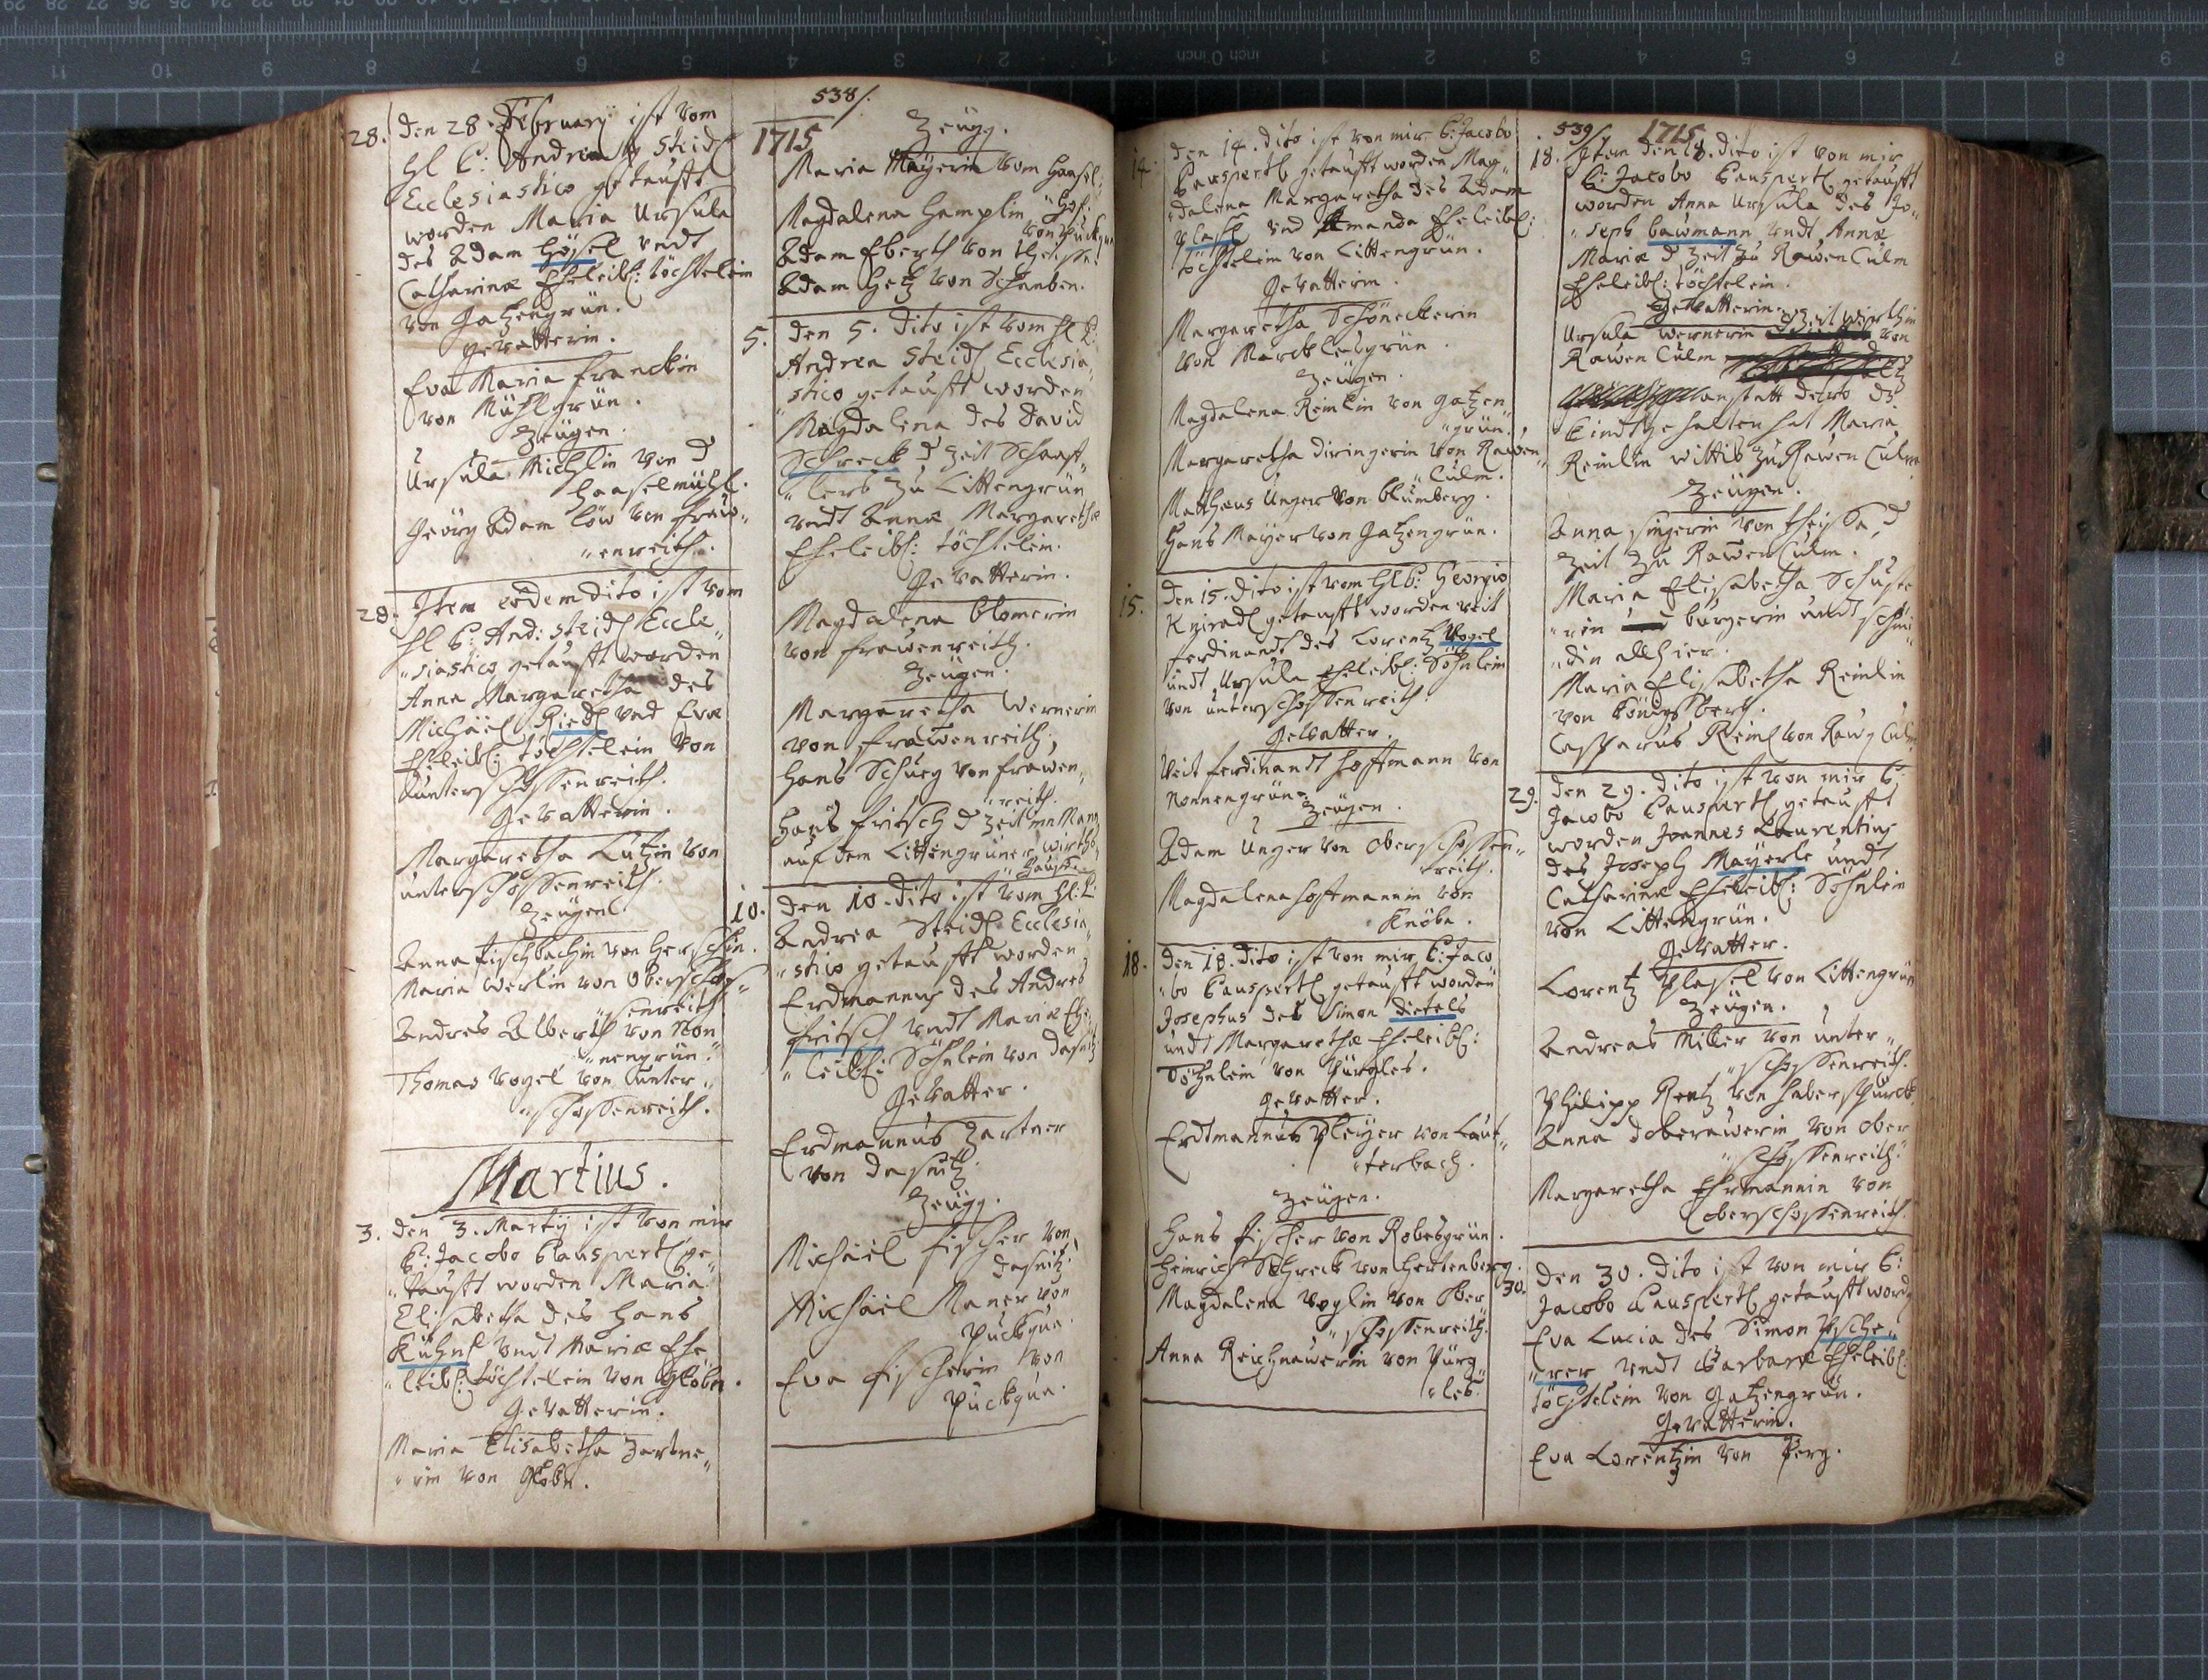 538/.
28. den 28. February ist vom
hl P: Andrea Steidl
Ecclesiastico getaufft
worden Maria Ursula
des Adam Hösel undt
Catharinæ Eheleibl: töchtelein
von Gatzengrün.
gevatterin.
Eva Maria Franckin
von Mühlgrün.
Zeügen.
Ursula Michlin von d
Haaselmühl.
Geörg Adam Löw von fraw„
„enreith.
28. Item eodem dito ist vom
hl P: And: Steidl Eccle„
„siastico getaufft worden
Anna Margaretha des
Michäel Riedl und Evæ
Eheleibl: töchtelein von
unterschossenreith.
Gevatterin.
Margaretha Lutzin von
unterschossenreith.
Zeügen.
Anna Fischbachin von
Maria Werlin von Oberschos„
„senreith
Andres Albert von Non„
„nengrün.
Thomas Vogel von unter„
„schossenreith.
Martius.
3. den 3. Martij ist von mir
P: Jacobo Pauspertl ge„
„taufft worden Maria
Elisabetha des Hans
Kühnl undt Mariæ Ehe„
„leibl: töchtelein von Globn.
Gevatterin.
Maria Elisabetha Zartne„
„rin von Globn.
1715
Zeügg.
Maria Mayerin vom Haasel„
„hof.
Magdalena Hamplin
von Puckqua
Adam Ebert von Theissa.
Adam Hetz von Schanben.
5. den 5. dito ist vom hl P:
Andrea Steidl Ecclesia„
„stico getaufft worden
Magdalena des David
Schreck d Zeit Schaaff„
„lers zu Littengrün
undt Annæ Margarethæ
Eheleibl: töchtelein.
Gevatterin.
Magdalena Blomerin
von frawenreith.
Zeügen.
Margaretha Wernerin
von frawenreith,
Hans Schueg von frawen„
„reith.
Hans Fritsch d Zeit
auf dem Littengrüner wirths„
„hause.
10. den 10. dito ist vom hl: P:
Andrea Steidl Ecclesia„
„stico getaufft worden
Erdmannus des Andres
Fritsch undt Mariæ Ehe„
„leibl: Söhnlein von Dasnitz
Gevatter.
Erdmannus Zartner
von Dasnitz.
Zeügg.
Michäel Fischer von
Dasnitz.
Michäel Maner von
Puckqua.
Eva Fischerin von
Puckqua.
14. den 14. dito ist von mir P: Jacobo
Pauspertl getaufft worden Mag„
„dalena Margaretha des Adam
Plasl und Amanda Eheleibl:
töchtelein von Littengrün.
Gevatterin.
Margaretha Schöneckerin
von Marcklesgrün.
Zeügen.
Magdalena Reinlin von Gatzen„
„grün.
Margaretha Diringerin von Rawen„
„Culm.
Mattheus Unger von Blumberg.
Hans Mayer von Gatzengrün.
15. den 15. dito ist vom hl P: Georgio
Knizadl getaufft worden Veit
Ferdinandt des Lorentz Vogel
undt Ursula Eheleibl: Söhnlein
von unterschossenreith.
Gevatter.
Veit Ferdinandt Hoffmann von
Nonnengrün.
Zeügen.
Adam Unger von Oberschossen„
„reith.
Magdalena Hoffmannin von
Knöba.
18. den 18. dito ist von mir P: Jaco„
„bo Pauspertl getaufft worden
Josephus des Simon Dietels
undt Margarethæ Eheleibl:
Söhnlein von Pürgles.
gevatter.
Erdtmannus Pleyer von Laut„
„terbach.
Zeügen.
Hans Fischer von Robesgrün.
Heinrich Schreck von Hertenberg.
Magdalena Voglin von Ober„
„schossenreith.
Anna Reichnawerin von Pürg„
„les.
539/. 1715
18. Item den 18. dito ist von mir
P: Jacobo Pauspertl getaufft
worden Anna Ursula des Jo„
„seph Bawmann undt Annæ
Mariæ d Zeit zu Rawen Culm
Eheleibl: töchtelein.
Gevatterin.
Ursula Wernerin von
Rawen Culm
anstatt dero dz
Kindt gehalten hat Maria
Reinlin wittib zu Rawen Culm
Zeügen.
Anna Singerin von Theissa, d
Zeit zu Rawen Culm.
Maria Elisabetha Schuste„
„rin burgerin undt schmi„
„din allhier.
Maria Elisabetha Reinlin
von Königsberg.
Casparus Reinl von Rawen Culm
29. den 29. dito ist von mir P:
Jacobo Pauspertl getaufft
worden Joannes Laurentius
des Joseph Mayerle undt
Catharinæ Eheleibl: Söhnlein
von Littengrün.
Gevatter.
Lorentz Plasel von Littengrün
Zeügen.
Andreas Miller von unter„
„schossenreith.
Philipp Rentz von Haberspürck.
Anna Doberawerin von ober„
„schossenreith.
Margaretha Ehrmannin von
oberschossenreith.
30. den 30. dito ist von mir P:
Jacobo Pauspertl getaufft worden
Eva Lucia des Simon Psche„
„rer undt Barbaræ Eheleibl:
töchtelein von Gatzengrün.
Gevatterin.
Eva Lorentzin von Perg.